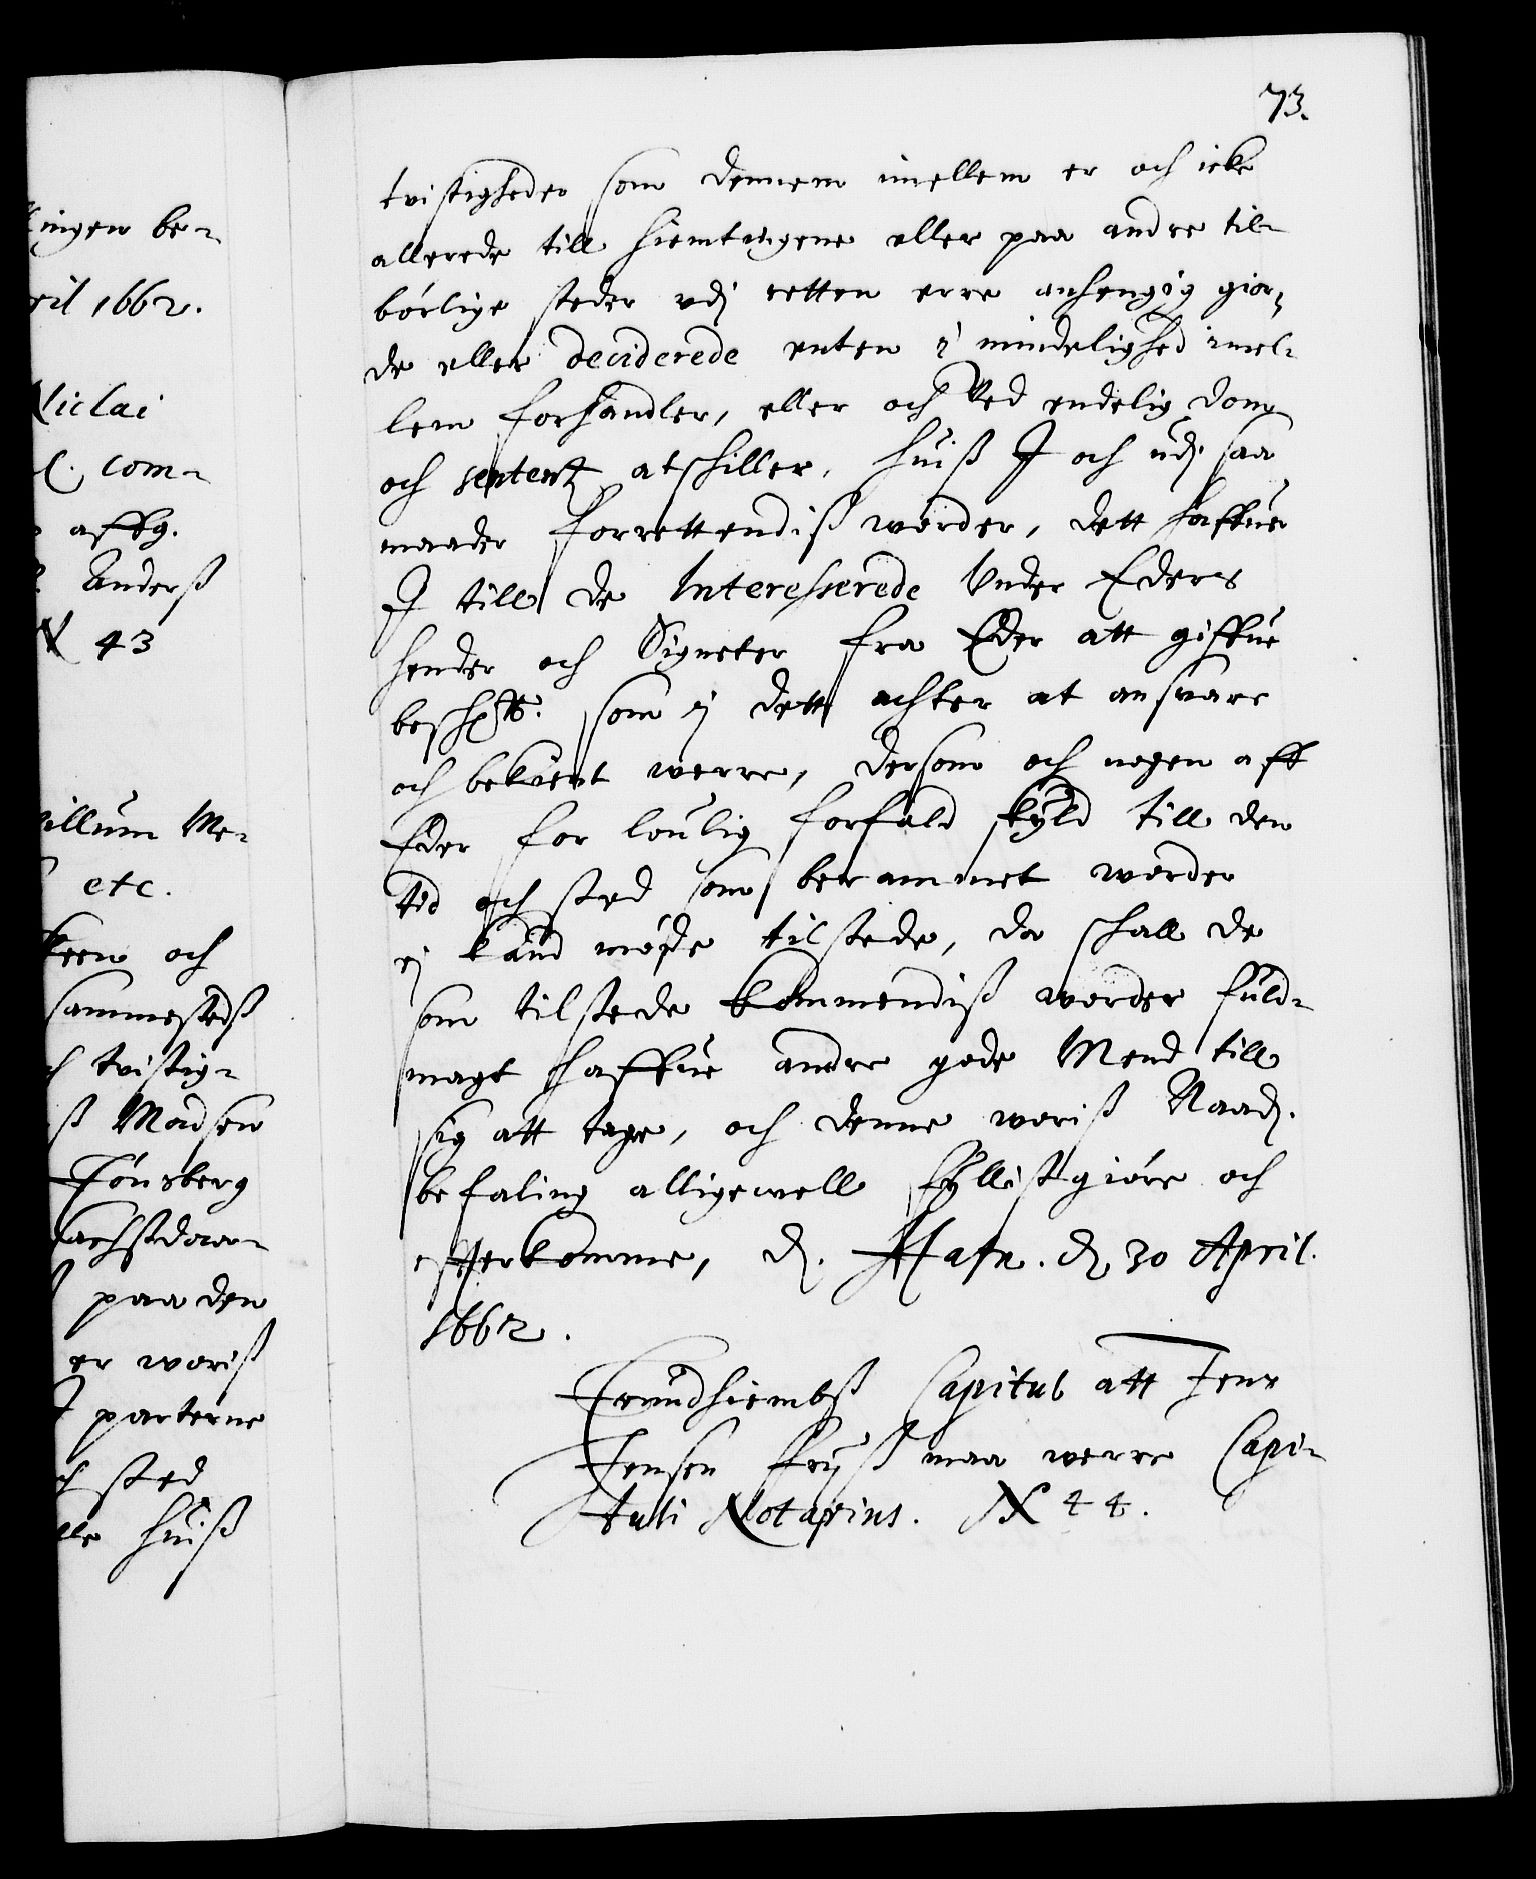 ingen be-
ril 1662.
Niclai
l. com-
affg.
Anderß
N 43
illum Me-
etc.
keen och
sammestedß
h tvistig-
ß Madsen
Tønsberg
paa den
er woriß
parterne
och sted
lle huiß
73.
tvistigheder som dennem imellem er och icke
allerede till hiemtingene eller paa andre til-
børlige steder vdj retten erre anhengig gior-
de eller deciderede enten i mindelighed imel-
lem forhandler, eller och Ved endelig dom
och sententz atskiller, huiß I och udj saa
maader forrettendiß worder, dett haffuer
I till de Interesserede Under Eders
hender och Signeter fra Eder att giffue
beschr: som i dett achter at ansvare
och bekient werre, dersom och nogen aff
Eder for loulig forfald skyld till den
tid och sted som berammet worder
ej kand møde tilstede, da schall de
som tilstede kommendiß worder fuld-
magt haffue andre gode Mend till
sig att tage, och denne woriß Naad.
befaling alligewell fyllistgiøre och
efterkomme, d. Hafn. d 30 April.
1662.
Trundhiembß Capitul att Jens
Jensen Kryß maa werre Capi-
tuli Notarius. N 44.